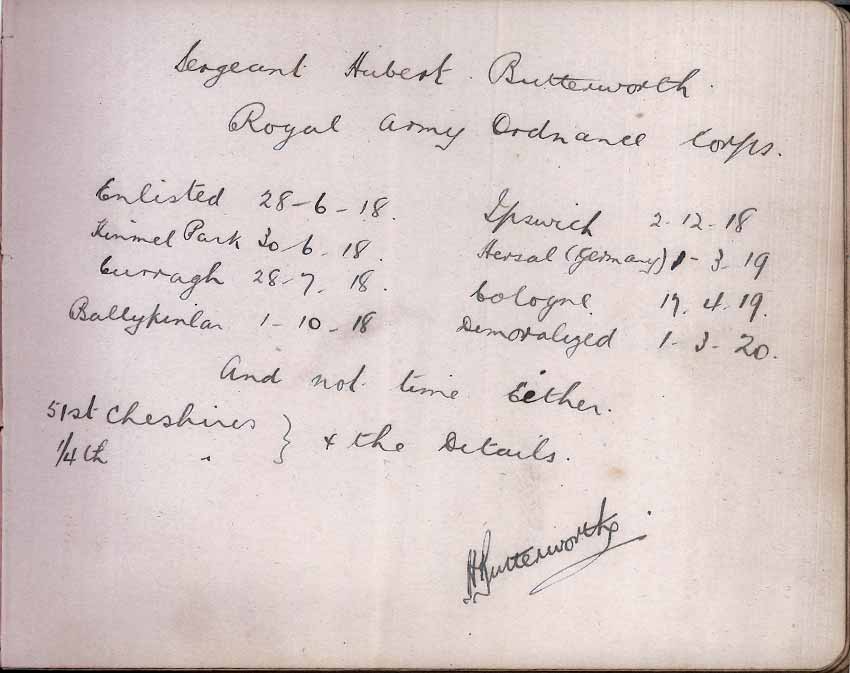 Sergeant Hubert Butterworth.
Royal Army Ordnance Corps.
Enlisted 28-6-18.
Kinmel Park 30-6-18.
Curragh 28-7-18.
Ballykinlar 1-10-18
Ipswich 2-12-18
Hersal (Germany) 1-3-19
Cologne 19.4.19.
Demoralized 1-3-20.
And not time Either.
51st Cheshires } & the Details.
1/4th "
HButterworth.